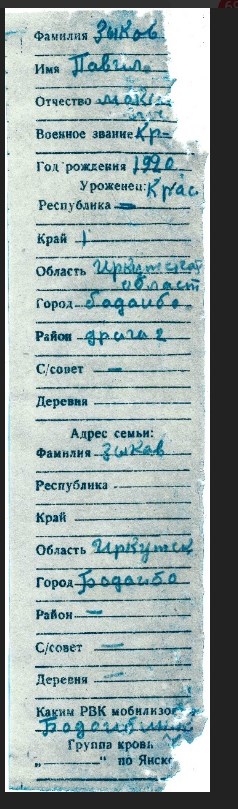 Фамилия Зыков
Имя Павел
Отчество
Военное звание Кр-
Год рождения 1920
Уроженец: Крас
Республика —
Край
Область Иркутской
област
Город Бодайбо
Район драга 2
С/совет —
Деревня
Адрес семьи:
Фамилия Зыков
Республика
Край
Область Иркутск
Город Бодайбо
Район —
С/совет —
Деревня —
Каким РВК мобилизов
Группа кровь
„ “ по Янско